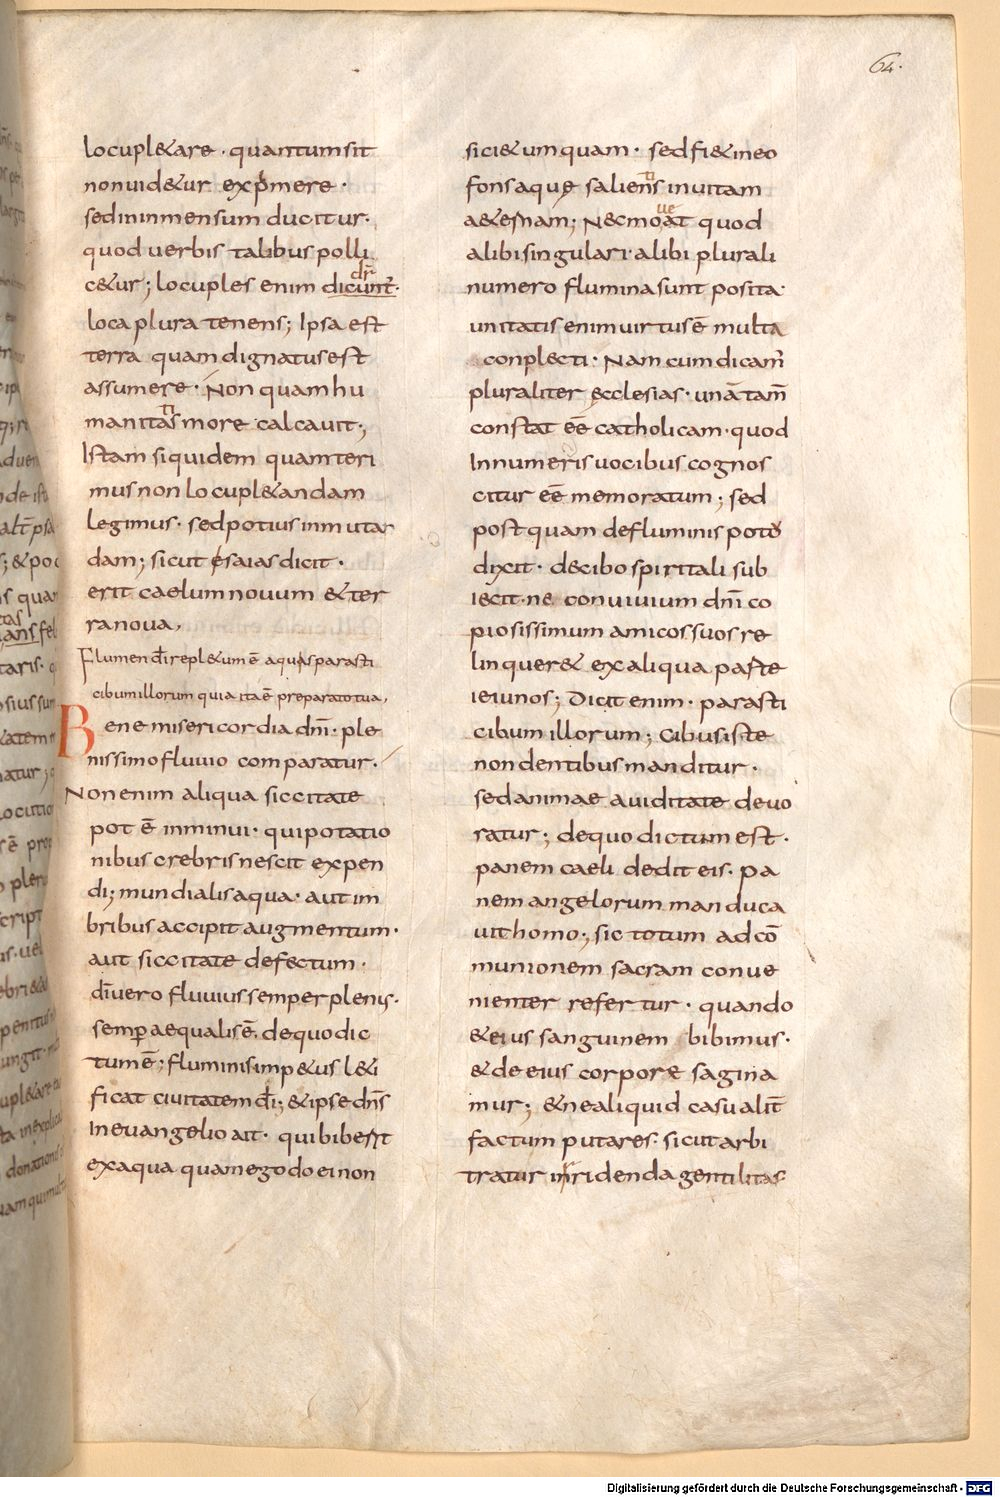 64.
locupl&are · quantum sit
non uid&ur exprimere ·
sed in inmensum ducitur ·
quod uerbis talibus polli
c&ur ; locuples enim dicunt̄ · dr̄
loca plura tenens ; Ipsa est
terra quam dignatus est
assumere · Non quam hu
manitatis more calcauit ;
Istam siquidem quam teri
mus non locupl&andam
legimus · sed potius inmutan
dam ; sicut esaias dicit ·
erit caelum nouum & ter
ra noua ,
Flumen dī repl&um ē aquis parasti
cibum illorum quia ita ē preparatio tua ,
Bene misericordia dnī · ple
nissimo fluuio comparatur ·
Non enim aliqua siccitate
pot ē inminui · qui potatio
nibus crebris nescit expen
di ; mundialis aqua · aut im
bribus accipit augmentum ·
aut siccitate defectum ·
dī uero fluuius semper plenus ·
semp aequalis ē , de quo dic
tum ē ; fluminis imp&us l&i
ficat ciuitatem dī ; & ipse dn̄s
In euangelio ait · qui biberit
ex aqua quam ego do ei non
sici& umquam · sed fi& in eo
fons aquę salientis in uitam
a&ernam ; Nec moueat quod
alibi singulari alibi plurali
numero flumina sunt posita ·
unitatis enim uirtus ē multa
conplecti · Nam cum dicam̄
pluraliter ęcclesias · unā tam̄
constat eē catholicam · quod
Innumeris uocibus cognos
citur eē memoratum ; sed
post quam de fluminis potu
dixit · de cibo spiritali sub
iecit · ne conuiuium dnī co
piosissimum amicos suos re
linquer& ex aliqua parte
ieiunos ; Dicit enim · parasti
cibum illorum ; Cibus iste
non dentibus manditur ·
sed animae auiditate deuo
ratur ; de quo dictum est ·
panem caeli dedit eis · pa
nem angelorum manduca
uit homo ; sic totum ad cō
munionem sacram conue
nienter refertur · quando
& eius sanguinem bibimus ·
& de eius corpore sagina
mur ; & ne aliquid casu alit̄
factum putares · sicut arbi
tratur inridenda gentilitas ·
Digitalisierung gefördert durch die Deutsche Forschungsgemeinschaft - DFG